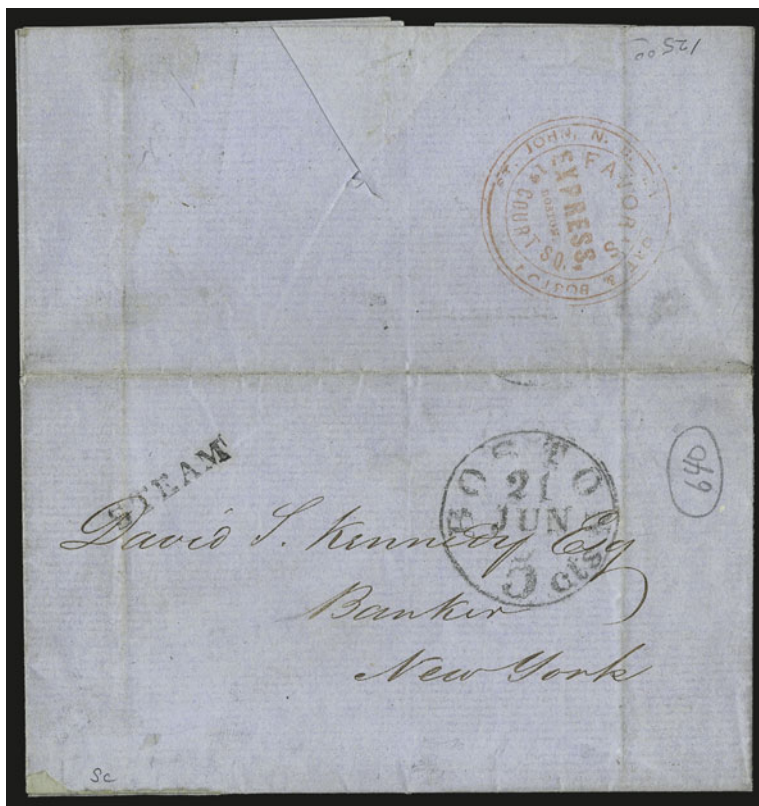 12500
ST. JOHN, N. B.
FAVOR'S
EXPRESS,
BOSTON
19 COURT SQ.
& BOSTON
STEAM
BOSTON
21
JUN
5 cts
640
David S. Kennedy Esq
Banker
New York
Sc